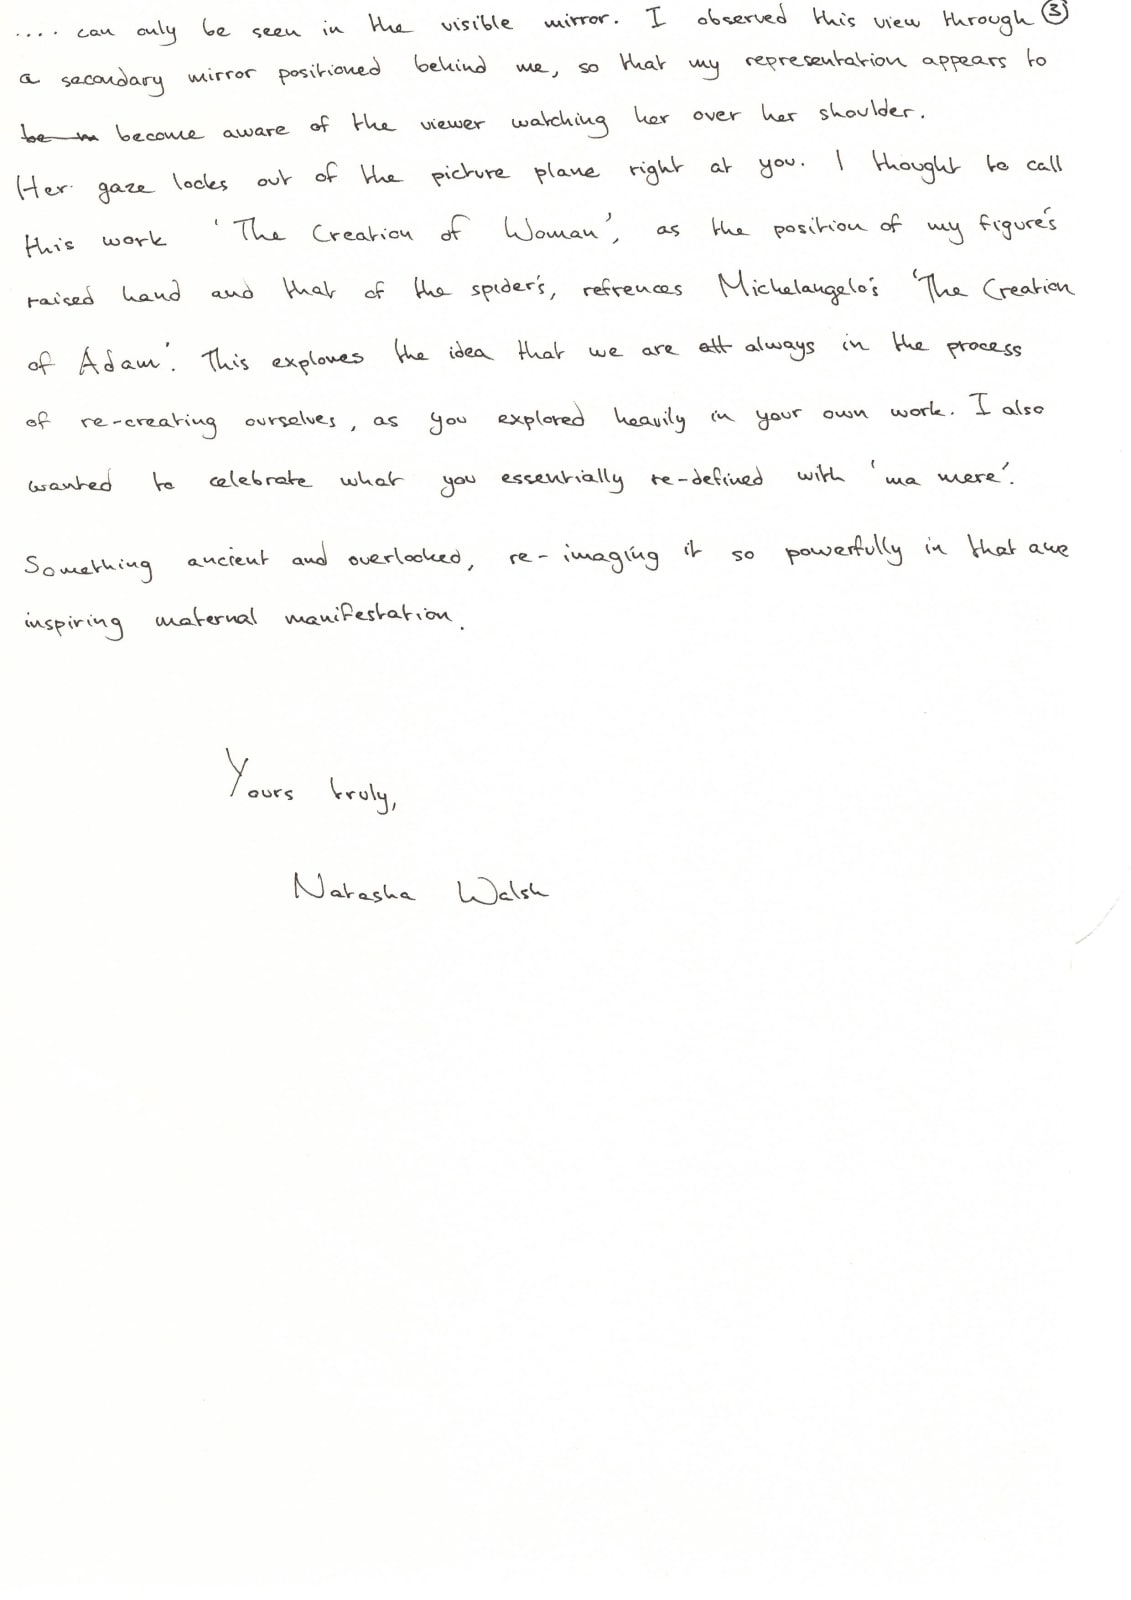 .... can only be seen in the visible mirror. I observed this view through ③
a secondary mirror positioned behind me, so that my representation appears to
be m become aware of the viewer watching her over her shoulder.
Her gaze locks out of the picture plane right at you. I thought to call
this work 'The Creation of Woman', as the position of my figure's
raised hand and that of the spider's, refrences Michelangelo's 'The Creation
of Adam'. This explores the idea that we are att always in the process
of re-creating ourselves, as you explored heavily in your own work. I also
wanted to celebrate what you essentially re-defined with 'ma mere'.
Something ancient and overlooked, re-imaging it so powerfully in that awe
inspiring maternal manifestation.
Yours truly,
Natasha Walsh